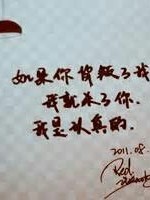 如果你背叛了我
我就杀了你.
我是认真的.
2011.08.
Red